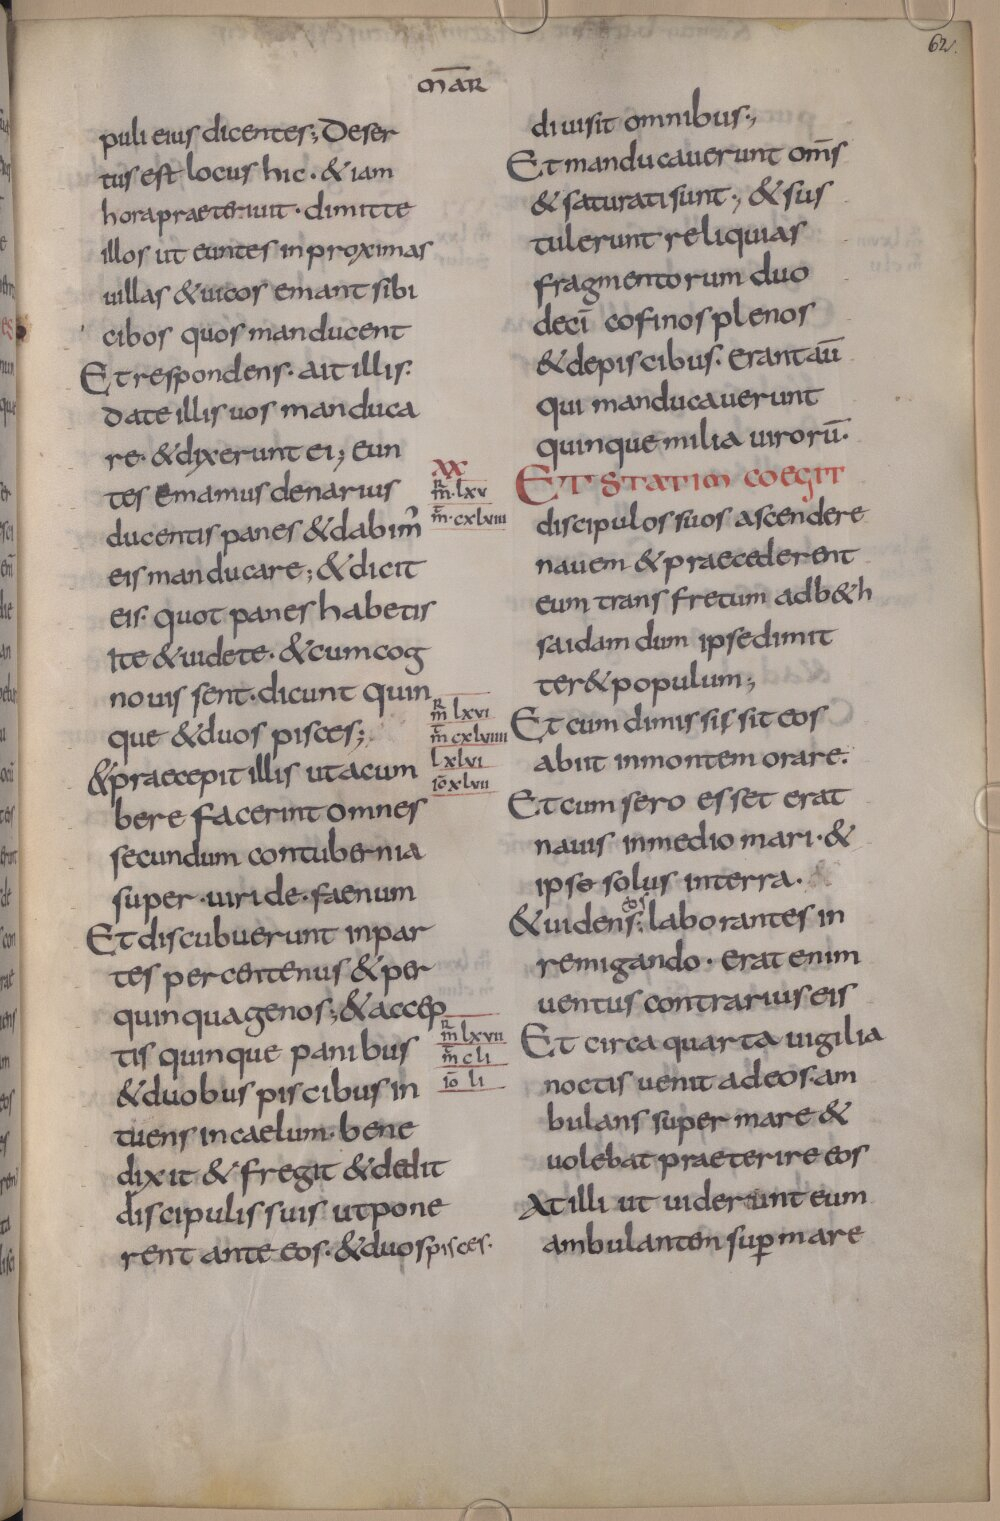 62.
m̄ar
puli eius dicentes; Deser
tus est locus hic. & iam
hora praeteriuit. dimitte
illos ut euntes in proximas
uillas & uicos emant sibi
cibos quos manducent
Et respondens. ait illis.
date illis uos manduca
re. & dixerunt ei; eun
tes emamus denarius
ducentis panes & dabim̓
eis manducare; & dicit
eis. quot panes habetis
Ite & uidete. & cum cog
nouis sent. dicunt quin
que & duos pisces;
& praecepit illis ut acum
bere facerint omnes
secundum contubernia
super .uiride. faenum
Et discubuerunt in par
tes per centenus & per
quinquagenos; & accep
tis quinque panibus
& duobus piscibus in
tuens in caelum. bene
dixit & fregit & dedit
discipulis suis ut pone
rent ante eos. & duos pisces.
xx
R
m̄. lxv
m̄. cxlviii
R
m̄ lxvi
m̄ cxlviiii
l xlvi
iō xlvii
R
m̄ lxvii
m̄ cli
iō li
diuisit omnibus;
Et manducauerunt om̄s
& saturati sunt; & sus
tulerunt reliquias
fragmentorum duo
decī cofinos plenos
& de piscibus. erant aū
qui manducauerunt
quinque milia uirorū.
Et statim coegit
discipulos suos ascendere
nauem & praecederent
eum trans fretum ad b&h
saidam dum ipse dimit
ter& populum;
Et cum dimissis sit eos
abiit in montem orare.
Et cum sero esset erat
nauis in medio mari. &
ipse solus in terra.
eos
& uidens; laborantes in
remigando. erat enim
uentus contrarius eis
Et circa quarta uigilia
noctis uenit ad eos. am
bulans super mare &
uolebat praeterire eos
At illi ut uiderunt eum
ambulantem sup̱ mare